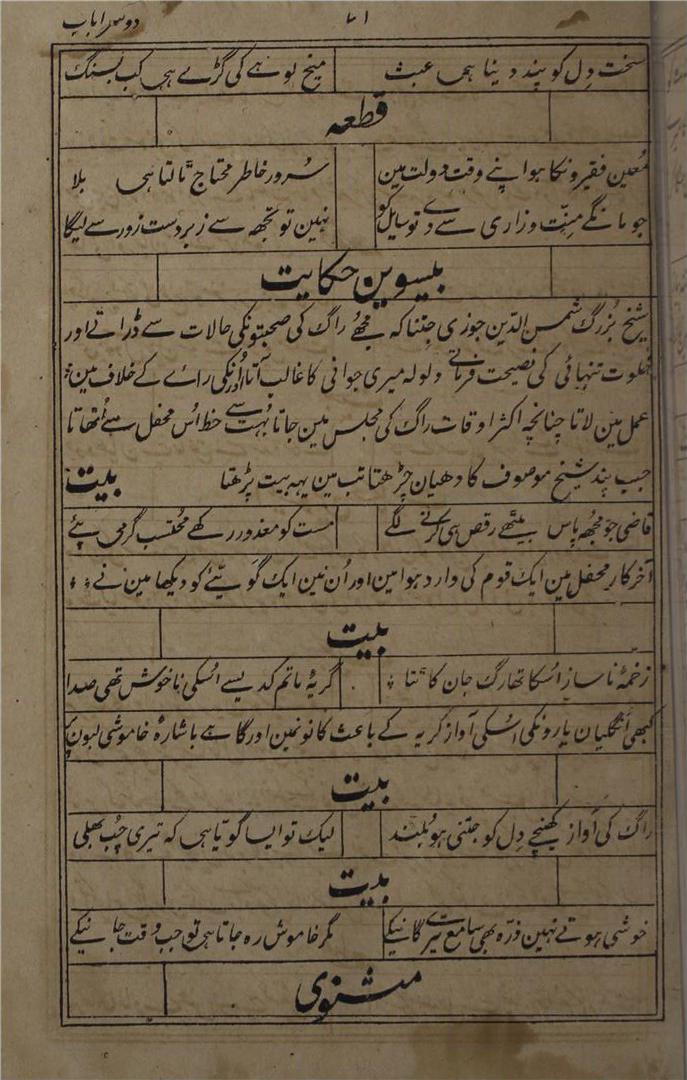 دوسرا باب ۷۱
سخت دل کو پند دینا ہی عبث میخ لوہے کی گڑے ہی کب بسنگ
قطعہ
مُعین فقیرونکا ہو اپنے وقت دولت مین سُرور خاطر محتاج ٹالتا ہی بلا
جو مانگے مِنّت وزاری سے دے تو سایل کو نہین تو تجھ سے زبردست زور سے لیگا
بیسوین حکایت
شیخ بُزرگ شمس الدّین جوزی جتنا کہ مجھے راگ کی صحبتونکی حالات سے ڈراتے اور
خلوت تنہائی کی نصیحت فرماتے ولولہ میری جوانی کا غالب آتا اُونکی راے کے خلاف مین
عمل مین لاتا چنانچہ اکثر اوقات راگ کی مجلس مین جاتا بُہت سے حظ اُس محفل سے اُٹھاتا
جب پند شیخ موصوف کا دھیان چڑھتا تب مین یہہ بیت پڑھتا بیت
قاضی جو مجھ پاس بیٹھے رقص ہی کرنے لگے مست کو معذور رکھے محُتسب گر می پئے
آخر کار محفل مین ایک قوم کی وارد ہوا مین اور اُن مین ایک گویّئے کو دیکھا مین نے
بیت
زخمۂ ناساز اُسکا تھا رگ جان کاٹتا گریۂ ماتم کدیسے اُسکی ناخوش تھی صدا
کبھی اُنگلیان یارونکی اُسکی آواز کریہ کے باعث کانونمین اور گاہے باشارۂ خاموشی لبون پر
بیت
راگ کی آواز کھینچے دل کو جتنی ہو بُلند لیک تو ایسا گویّا ہی کہ تیری چُپ بھلی
بیت
خوشی ہوتے نہین ذرّہ بھی سامع تیرے گانیکے مگر خاموش رہ جاتا ہی تو جب وقت جانیکے
مثنوی